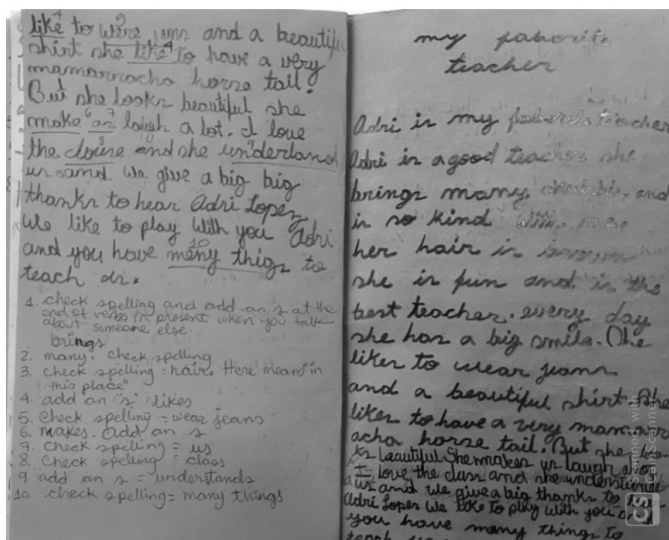 like to were juns and a beautiful
shirt she like to have a very
mamarrocho horse tall.
But she looks beautiful she
make as laugh a lot. I love
the clouse and she understand
us and we give a big big
thanks to hear Adri Lopez
We like to play with you Adri
and you have meny thigs to
teach us.
1. check spelling and add an s at the
end of verbs in present when you talk
about someone else.
brings
2. many. check spelling
3. check spelling = hair. Here means "in
this place"
4. add an "s" likes
5. check spelling = wear jeans
6. makes. Add an s
7. check spelling = us
8. check spelling = class
9. add an s = understands
10. check spelling = many things
my faborite
teacher
Adri is my teacher
Adri is a good teacher she
brings many and
is so kind
her hair is brown
she is fun and is the
best teacher. every day
she has a big smile. She
likes to wear jeans
and a beautiful shirt. She
likes to have a very mamarr
acho horse tail. But she loo
ks beautiful. She makes us laugh a lot
I love the class and she understand
s us and we give a big thanks to
Adri Lopes We like to play with you
you have many things to
teach
Scanned with
CS CamScanner